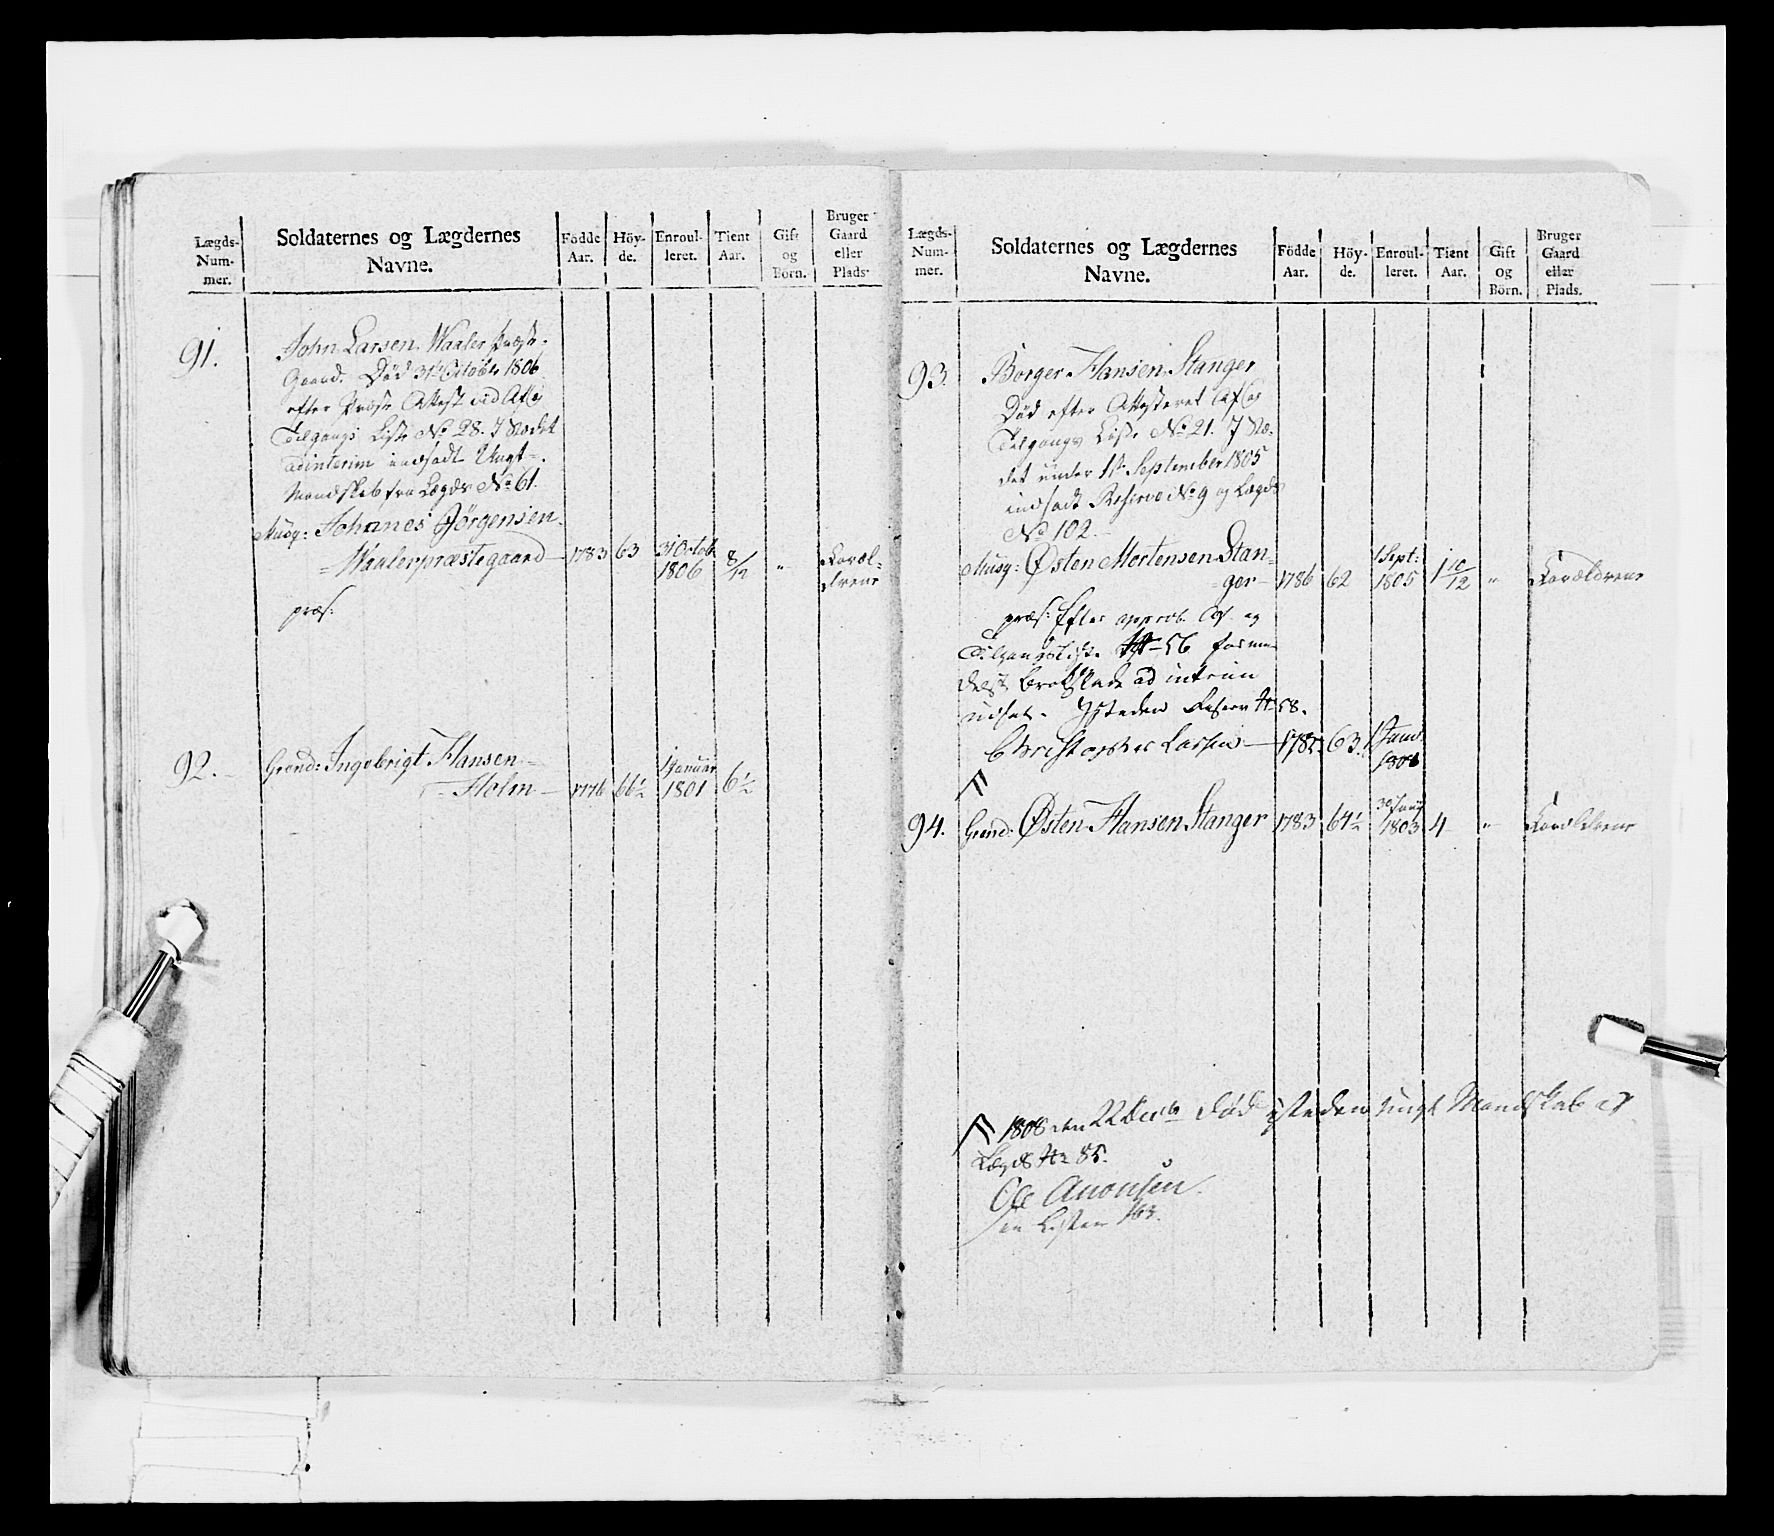 Lægds-
Num-
mer.
Soldaternes og Lægdernes
Navne.
Födde
Aar.
Höy-
de.
Enroul-
leret.
Tient
Aar.
Gift
og
Börn.
Bruger
Gaard
eller
Plads.
91.
John Larsen Waaler Præste-
Gaard. Död 31te Octobr 1806
efter Præste Attest ved Af og
Tilgangs Liste No 28. I Stædet
adinterim indsadt Ungt-
Mandskab fra Lægds No 61.
Musq: Johanes Jörgensen
Waalerpræstegaard 1783 63 31 Octob 1806 8/12 " Foræl-
drene
præs:
92.
Grend: Ingebrigt Hansen
Holm 1776 66½ 1 Januar 1801 6½
Lægds-
Num-
mer.
Soldaternes og Lægdernes
Navne.
Födde
Aar.
Höy-
de.
Enroul-
leret.
Tient
Aar.
Gift
og
Börn.
Bruger
Gaard
eller
Plads.
93.
Borger Hansen Stanger
Död efter Attesteret Af og
Tilgangs Liste No 21. I Stæ-
det under 1ste September 1805
indsadt Reserve No 9 og Lægds
No 102.
Musq: Østen Mortensen Stan-
ger 1786 62 1 Sept: 1805 1 10/12 " Forældrene
præs: Efter approb. Af og
Tilgangsliste No 56 forme-
delst Brokskade ad interim
udsat. Isteden Reserv No 58.
Christopher Larsen 1785 63. 1 Janu
94.
Grend: Østen Hansen Stanger 1783 64½ 30 Juny 1803 4 " Forældrene
1808 den 22 Decb Död isteden ungt Mandskab af
Lægds No 85.
Ole Anonsen
En Listen 163.